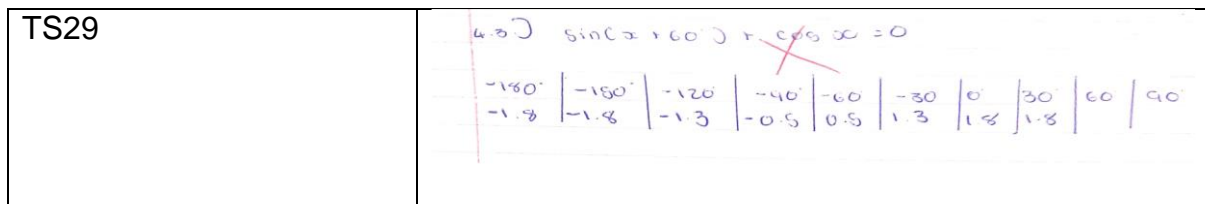 TS29
4.3) sin(x + 60°) + cos x = 0
-180° | -150° | -120 | -90 | -60 | -30 | 0 | 30 | 60 | 90
-1.8 | -1.8 | -1.3 | -0.5 | 0.5 | 1.3 | 1.8 | 1.8